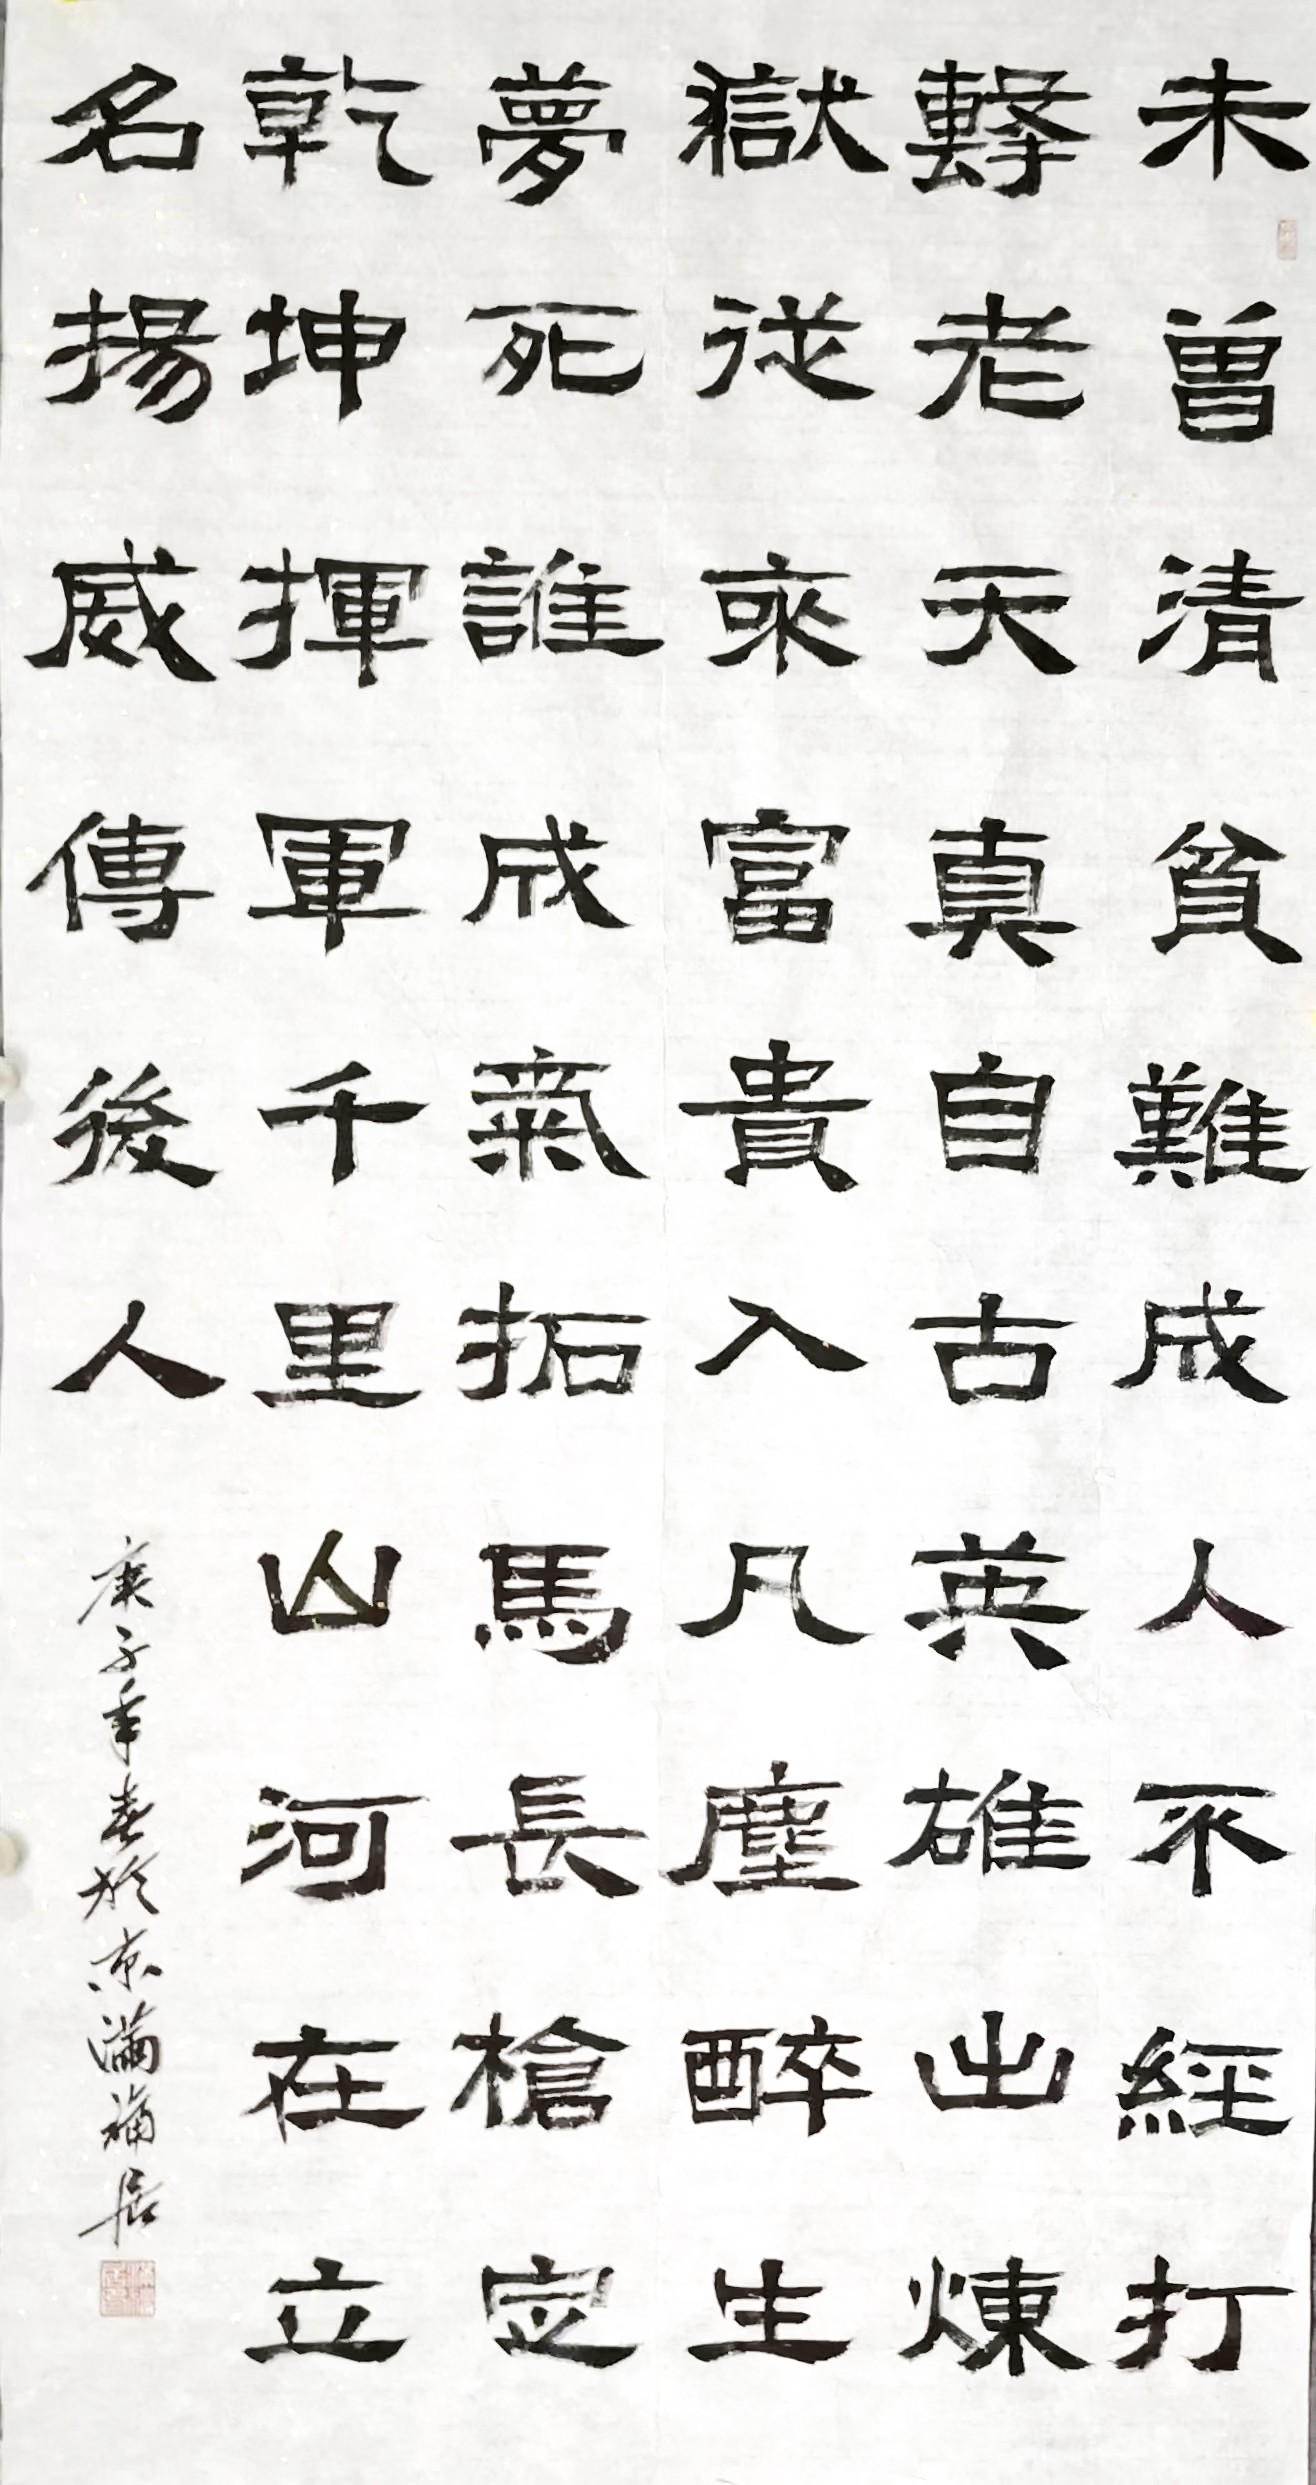 未曾清貧難成人不經打
擊老天真自古英雄出煉
獄從來富貴入凡塵醉生
夢死誰成氣拓馬長槍定
乾坤揮軍千里山河在立
名揚威傳後人
庚子年春於京滿福居